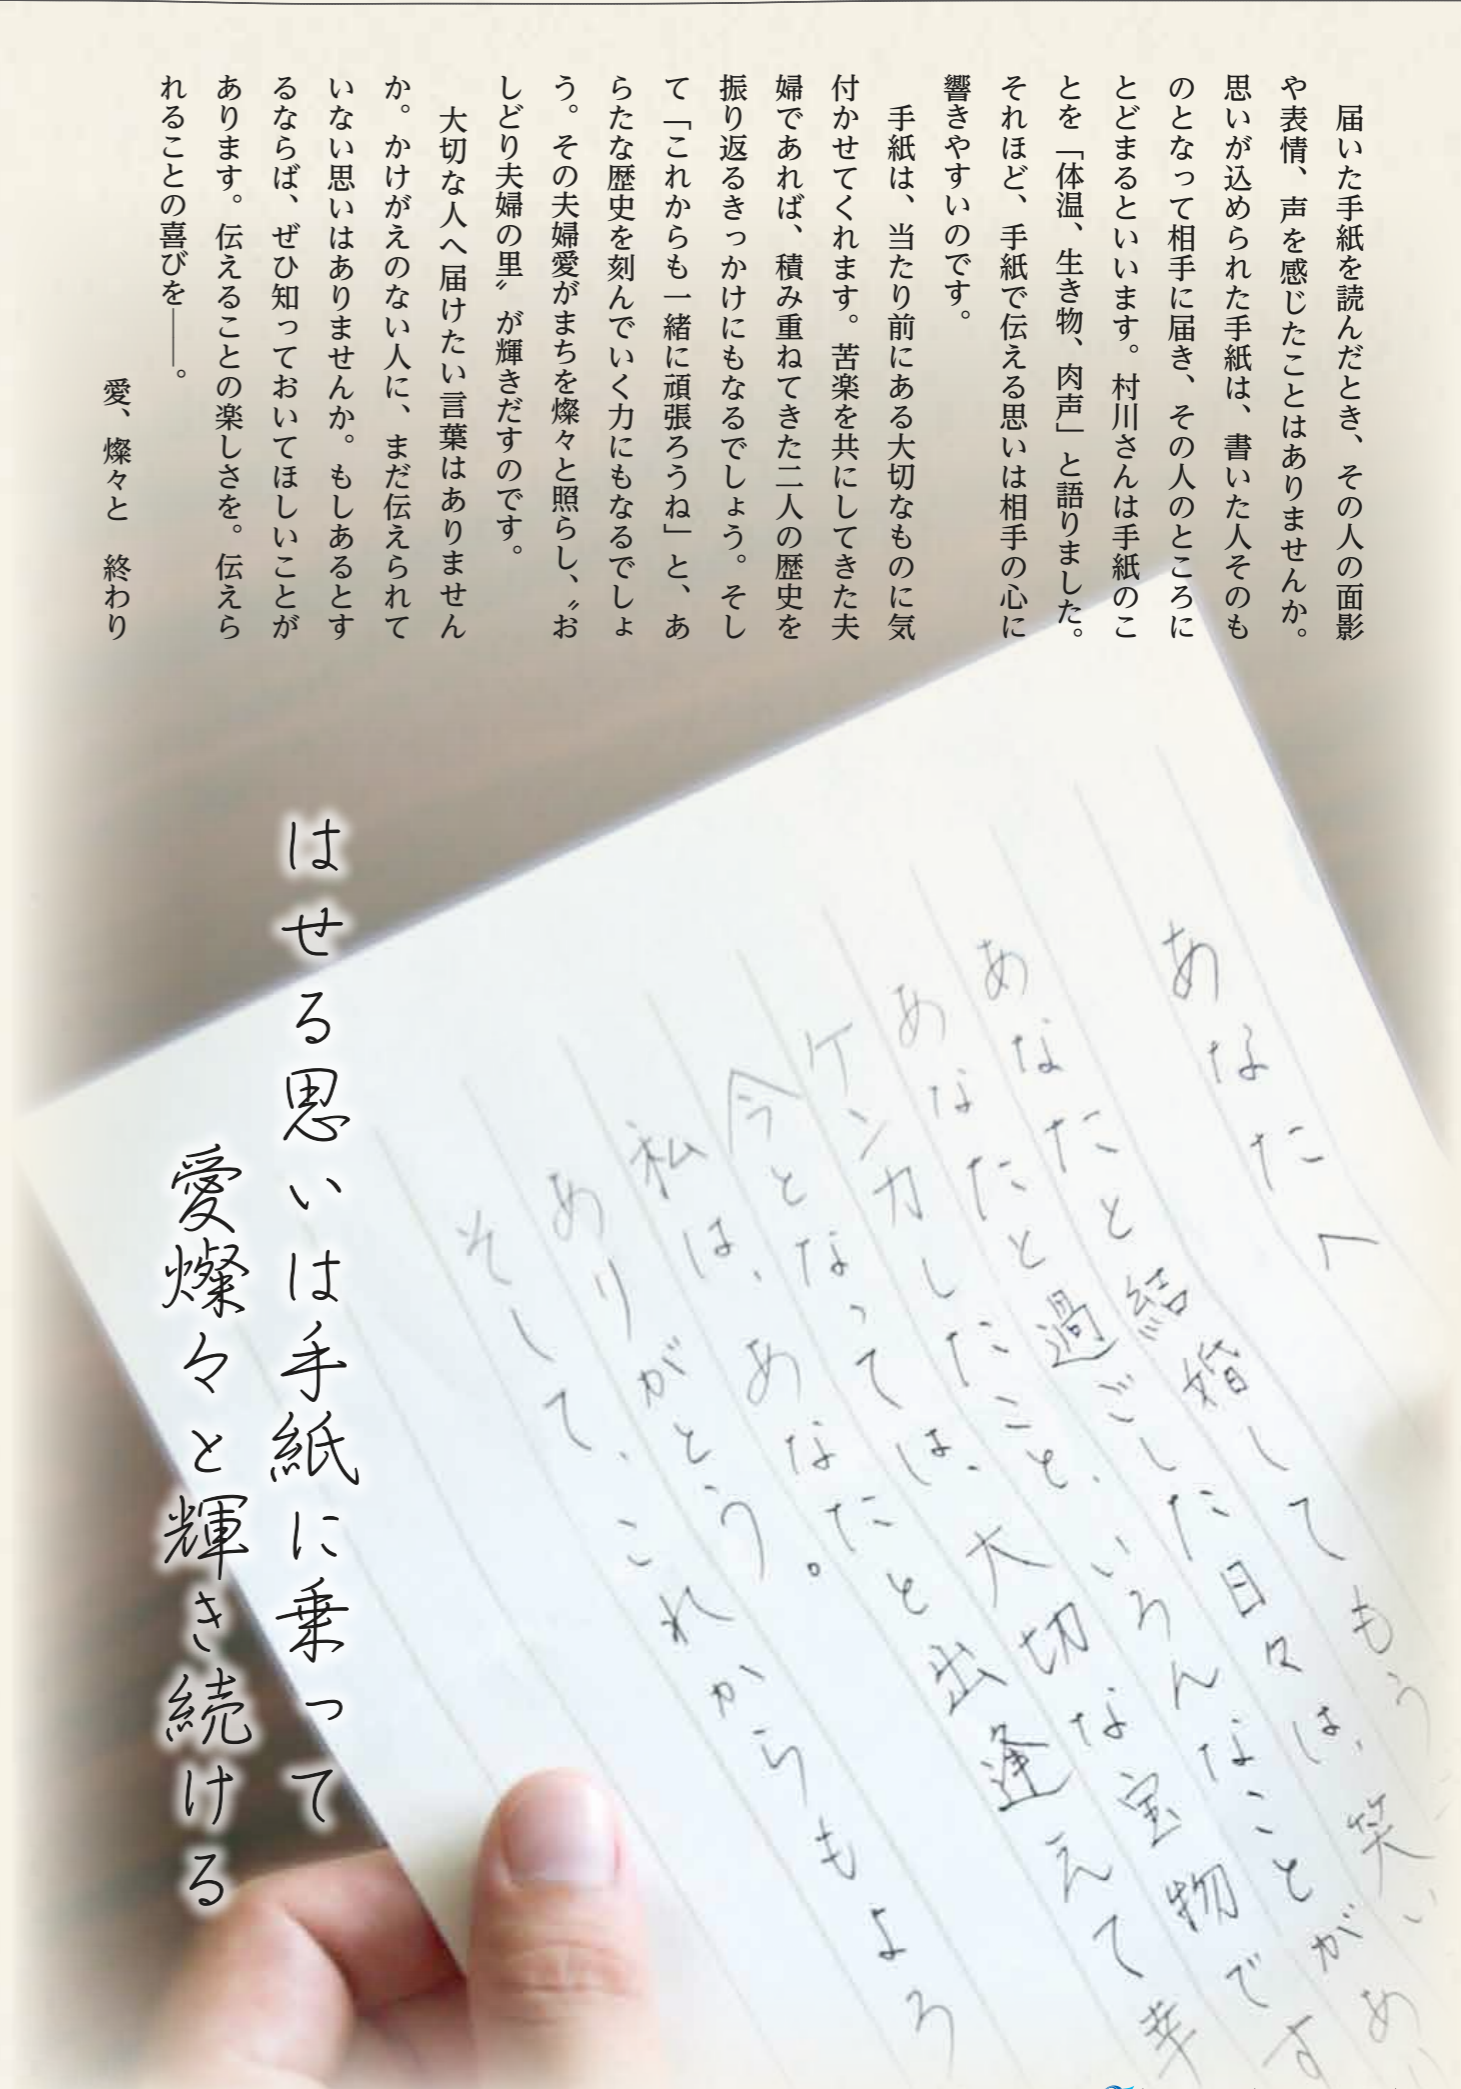 届いた手紙を読んだとき、その人の面影
や表情、声を感じたことはありませんか。
思いが込められた手紙は、書いた人そのも
のとなって相手に届き、その人のところに
とどまるといいます。村川さんは手紙のこ
とを「体温、生き物、肉声」と語りました。
それほど、手紙で伝える思いは相手の心に
響きやすいのです。
手紙は、当たり前にある大切なものに気
付かせてくれます。苦楽を共にしてきた夫
婦であれば、積み重ねてきた二人の歴史を
振り返るきっかけにもなるでしょう。そし
て「これからも一緒に頑張ろうね」と、あ
らたな歴史を刻んでいく力にもなるでしょ
う。その夫婦愛がまちを燦々と照らし、〝お
しどり夫婦の里〟が輝きだすのです。
大切な人へ届けたい言葉はありません
か。かけがえのない人に、まだ伝えられて
いない思いはありませんか。もしあるとす
るならば、ぜひ知っておいてほしいことが
あります。伝えることの楽しさを。伝えら
れることの喜びを――。
愛、燦々と　終わり
はせる思いは手紙に乗って
愛燦々と輝き続ける
あなたへ
あなたと結婚してもう
あなたと過ごした日々は、笑いあい
ケンカしたこと、いろんなことが
今となっては、大切な宝物です
私は、あなたと出逢えて幸
ありがとう。
そして、これからもよろ